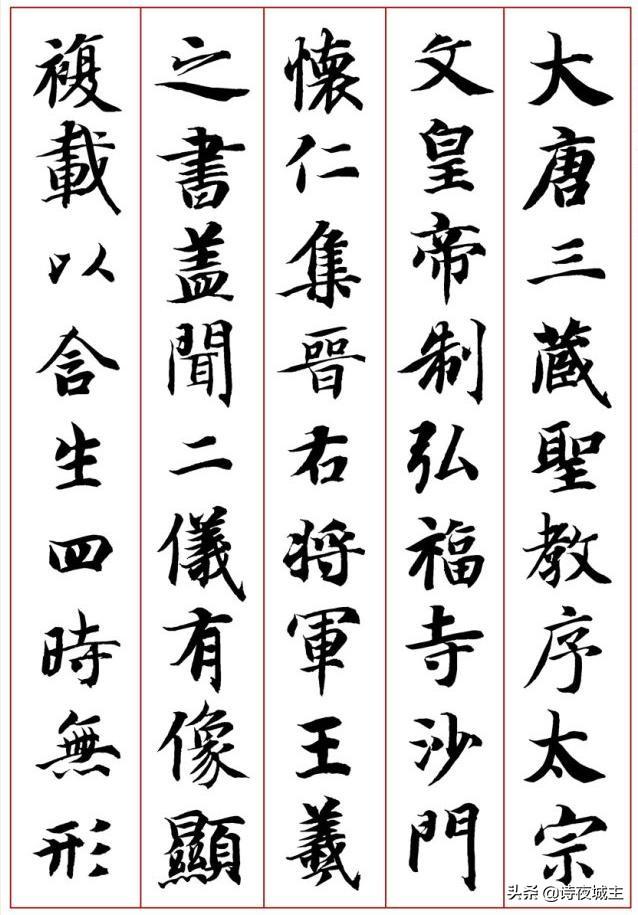 大唐三蔵聖教序太宗
文皇帝制弘福寺沙門
懐仁集晉右将軍王羲
之書盖聞二儀有像顯
複載以含生四時無形
头条 @诗夜城主